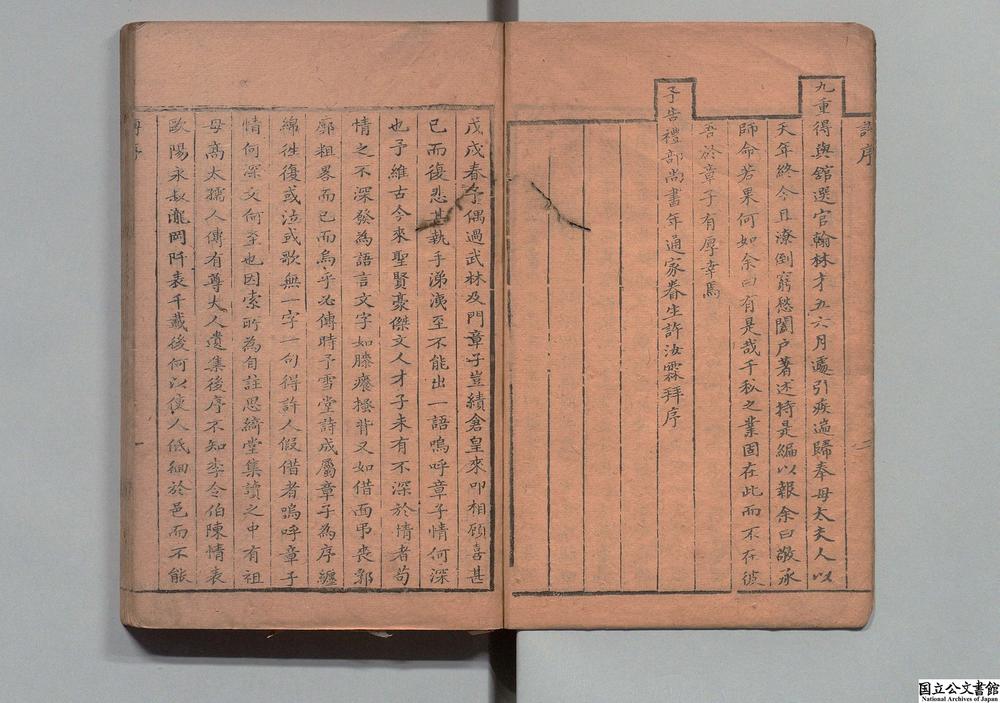 許序
九重得與舘選官翰林才五六月遽引疾遄歸奉母太夫人以
天年終今且潦倒窮愁闔户著述持是編以報余曰敬承
師命若果何如余曰有是哉千秋之業固在此而不在彼
吾於章子有厚幸焉
予告禮部尚書年通家眷生許汝霖拜序
二
戊戌春予偶過武林及門章子豈績倉皇來叩相顧喜甚
已而復悲甚執手涕洟至不能出一語嗚呼章子情何深
也予維古今來聖賢豪傑文人才子未有不深於情者苟
情之不深發為語言文字如膝癢搔背又如借面弔喪郭
廓粗畧而已而烏乎必傳時予雪堂詩成屬章子為序纏
綿徃復或泣或歌無一字一句得許人假借者嗚呼章子
情何深文何至也因索所為自註思綺堂集讀之中有祖
母高太孺人傳有尊大人遺集後序不知李令伯陳情表
歐陽永叔瀧岡阡表千載後何以使人低細於邑而不能
序
一
国立公文書館
National Archives of Japan